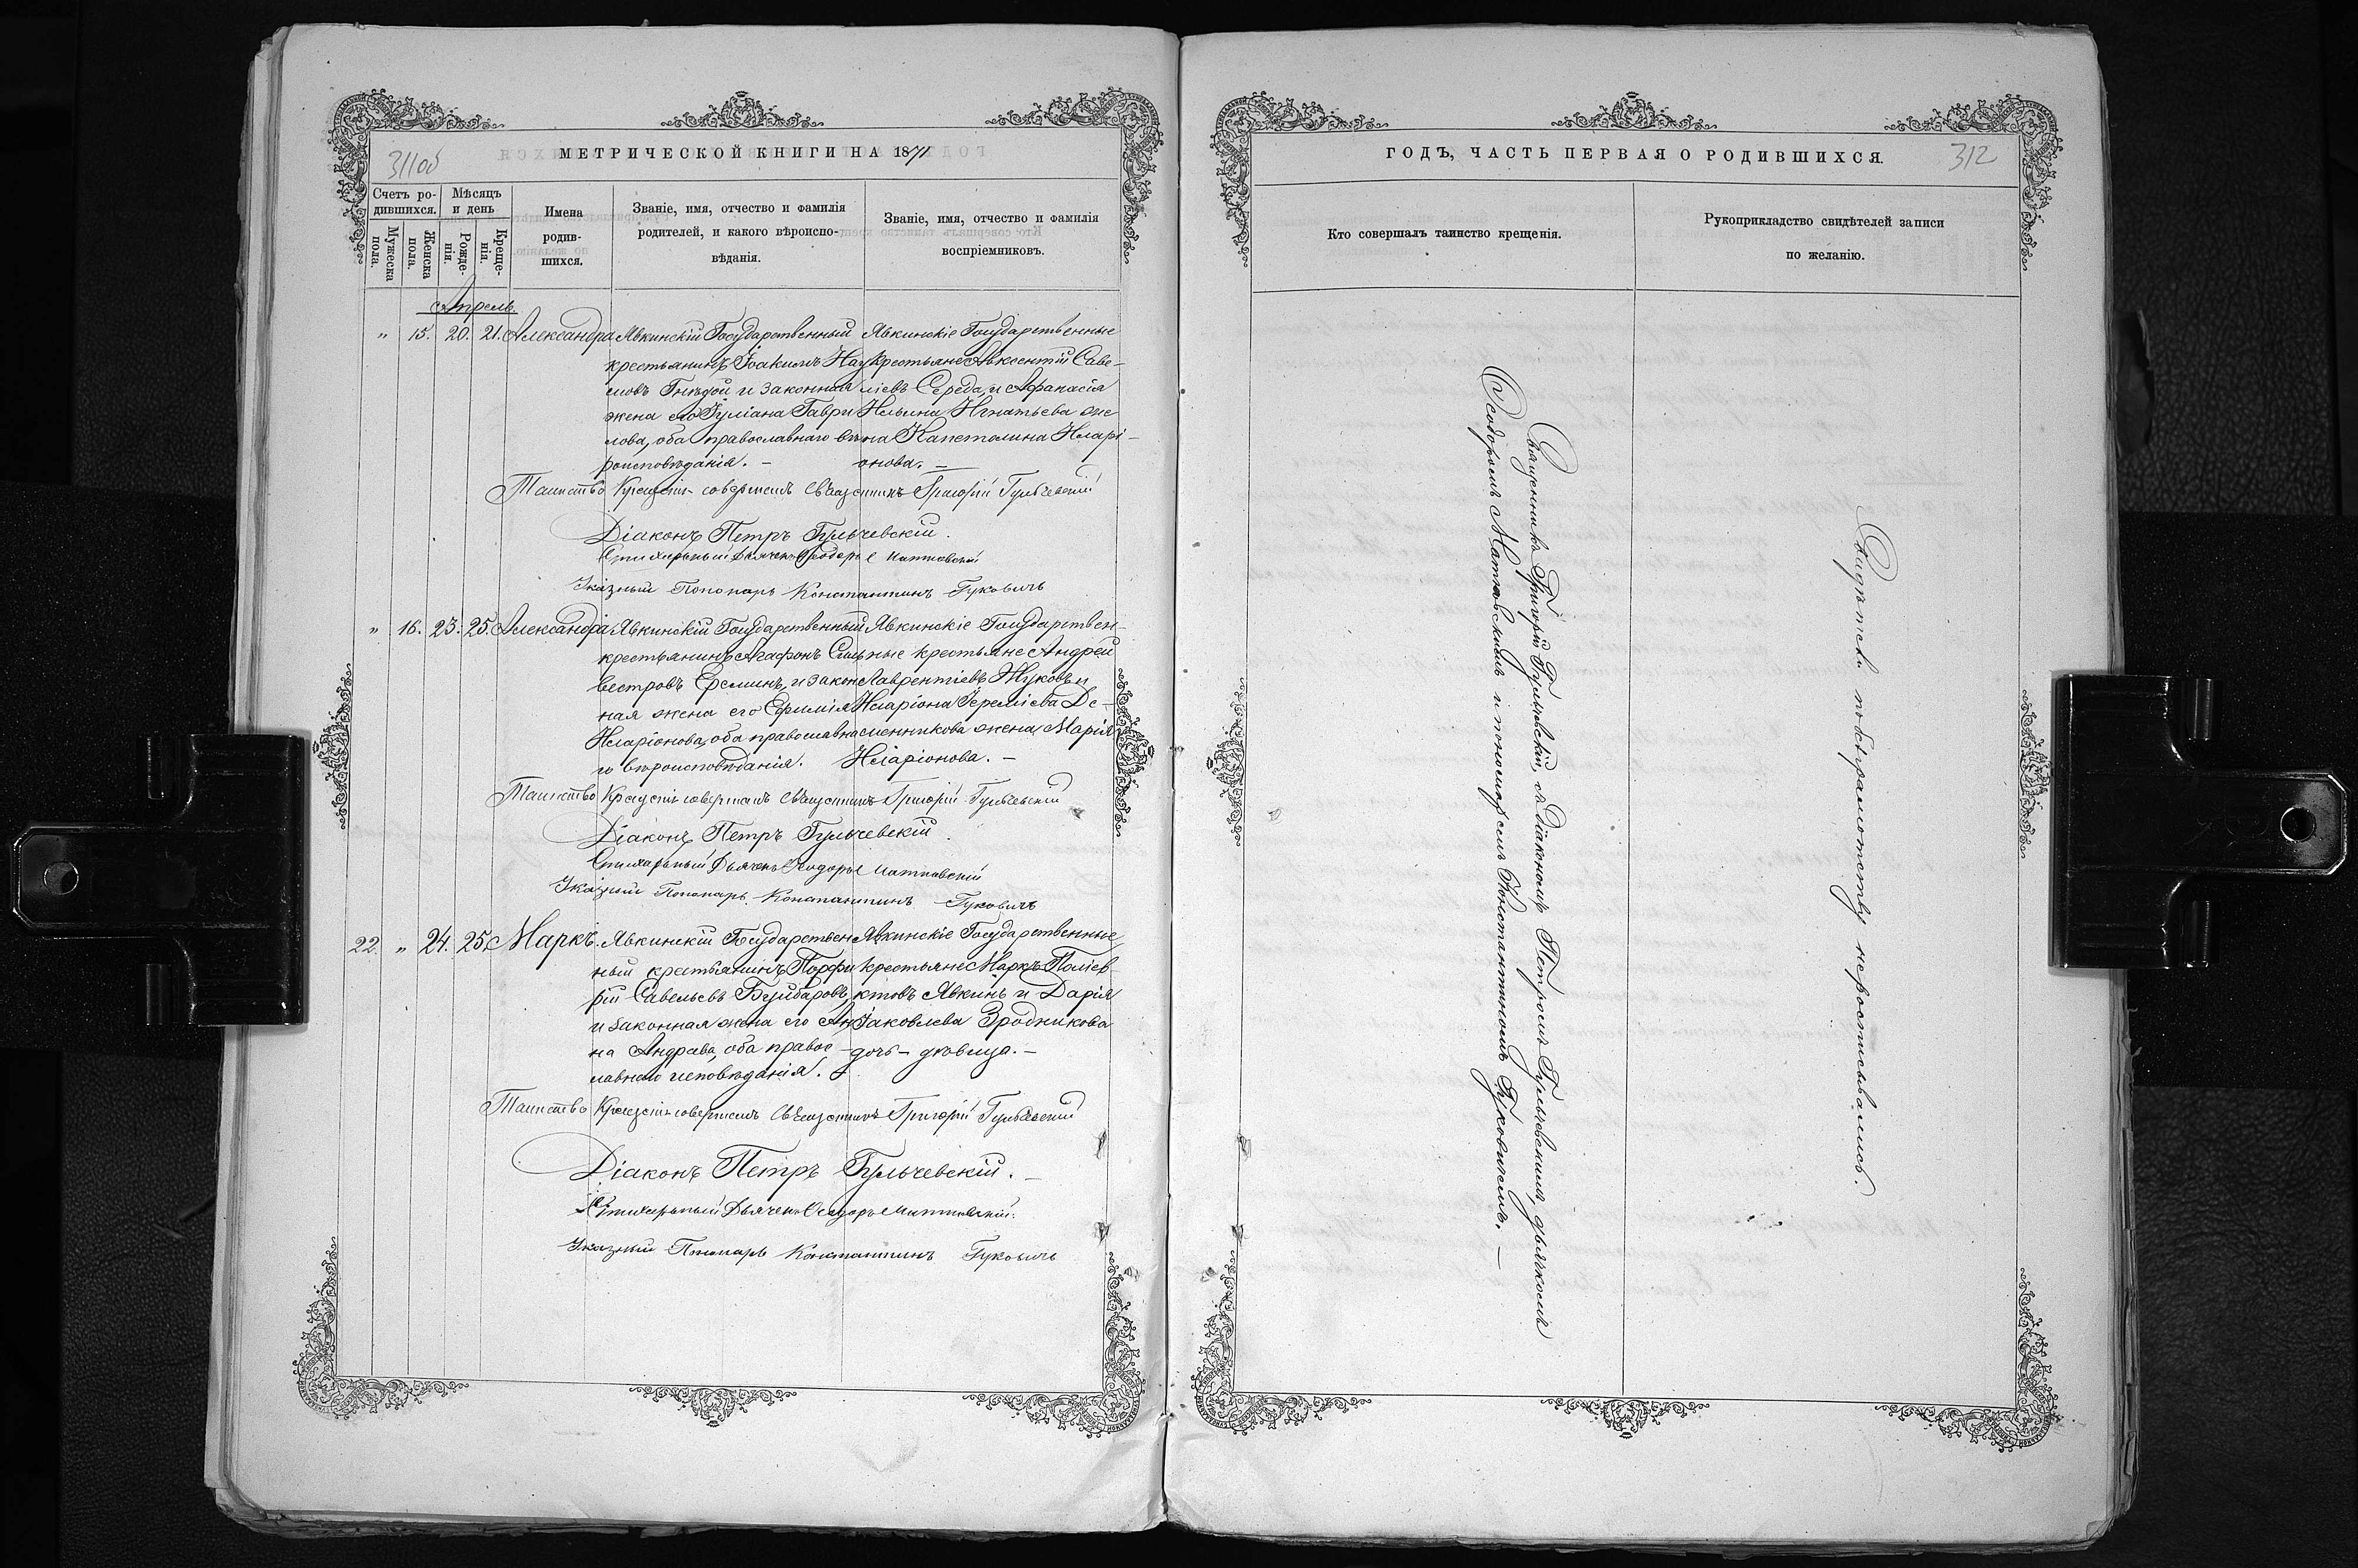 311об
МЕТРИЧЕСКОЙ КНИГИ НА 1871
Счетъ ро-
дившихся.
Мѣсяцъ
и день
Мужеска
пола.
Женска
пола.
Рожде-
нія.
Креще-
нія.
Имена
родив-
шихся.
Званіе, имя, отчество и фамилія
родителей, и какого вѣроиспо-
вѣданія.
Званіе, имя, отчество и фамилія
воспріемниковъ.
Апрель
„ 15. 20. 21. Александра
Явкинскій Государственный
крестьянинъ Іоакимъ Нау
мовъ Гнѣдой и законная
жена его Іуліана Гаври
лова, оба православнаго вѣ
роисповѣданія. –
Явкинскіе Государственные
крестьяне Авксентій Саве-
ліевъ Середа, и Афанасія
Ильина Игнатьева же
на Капетолина Иларі-
онова. –
Таинство Крещенія совершилъ Священникъ Григорій Гульчевскій
Діаконъ Петръ Гульчевскій.
Стихарный Дьячекъ Ѳеодоръ Матковскій
Указный Пономарь Константинъ Гуковичъ
„ 16. 23. 25. Александра
Явкинскій Государственный
крестьянинъ Агафонъ Силь
вестровъ Ереминъ, и закон
ная жена его Ефимія
Иларіонова, оба православна
го вѣроисповѣданія.
Явкинскіе Государствен-
ные крестьяне Андрей
Лаврентіевъ Жуковъ и
Иларіона Іереміева Де-
сменникова жена Марія
Иларіонова. –
Таинство Крещенія совершилъ Священникъ Григорій Гульчевскій
Діаконъ Петръ Гульчевскій.
Стихарный Дьячекъ Ѳеодоръ Матковскій
Указный Пономарь Константинъ Гуковичъ
22. „ 24. 25. Маркъ.
Явкинскій Государствен
ный крестьянинъ Порфи
рій Савельевъ Буйбаровъ,
и законная жена его Ан
на Андреева, оба правос-
лавнаго исповѣданія.
Явкинскіе Государственные
крестьяне Маркъ Поліев
ктовъ Явкинъ и Дарія
Іаковлева Зродникова
дочь – дѣвица. –
Таинство Крещенія совершилъ Священникъ Григорій Гульчевскій
Діаконъ Петръ Гульчевскій. –
Стихарный Дьячекъ Ѳеодоръ Матковскій.
Указный Пономарь Константинъ Гуковичъ
ГОДЪ, ЧАСТЬ ПЕРВАЯ О РОДИВШИХСЯ.
312
Кто совершалъ таинство крещенія.
Рукоприкладство свидѣтелей записи
по желанію.
Священникъ Григорій Гульчевскій, съ Діакономъ Петромъ Гульчевскимъ, дьячкомъ
Ѳеодоромъ Матковскимъ и пономаремъ Константиномъ Гуковичемъ. –
Свидѣтели по безграмотству неросписывались.